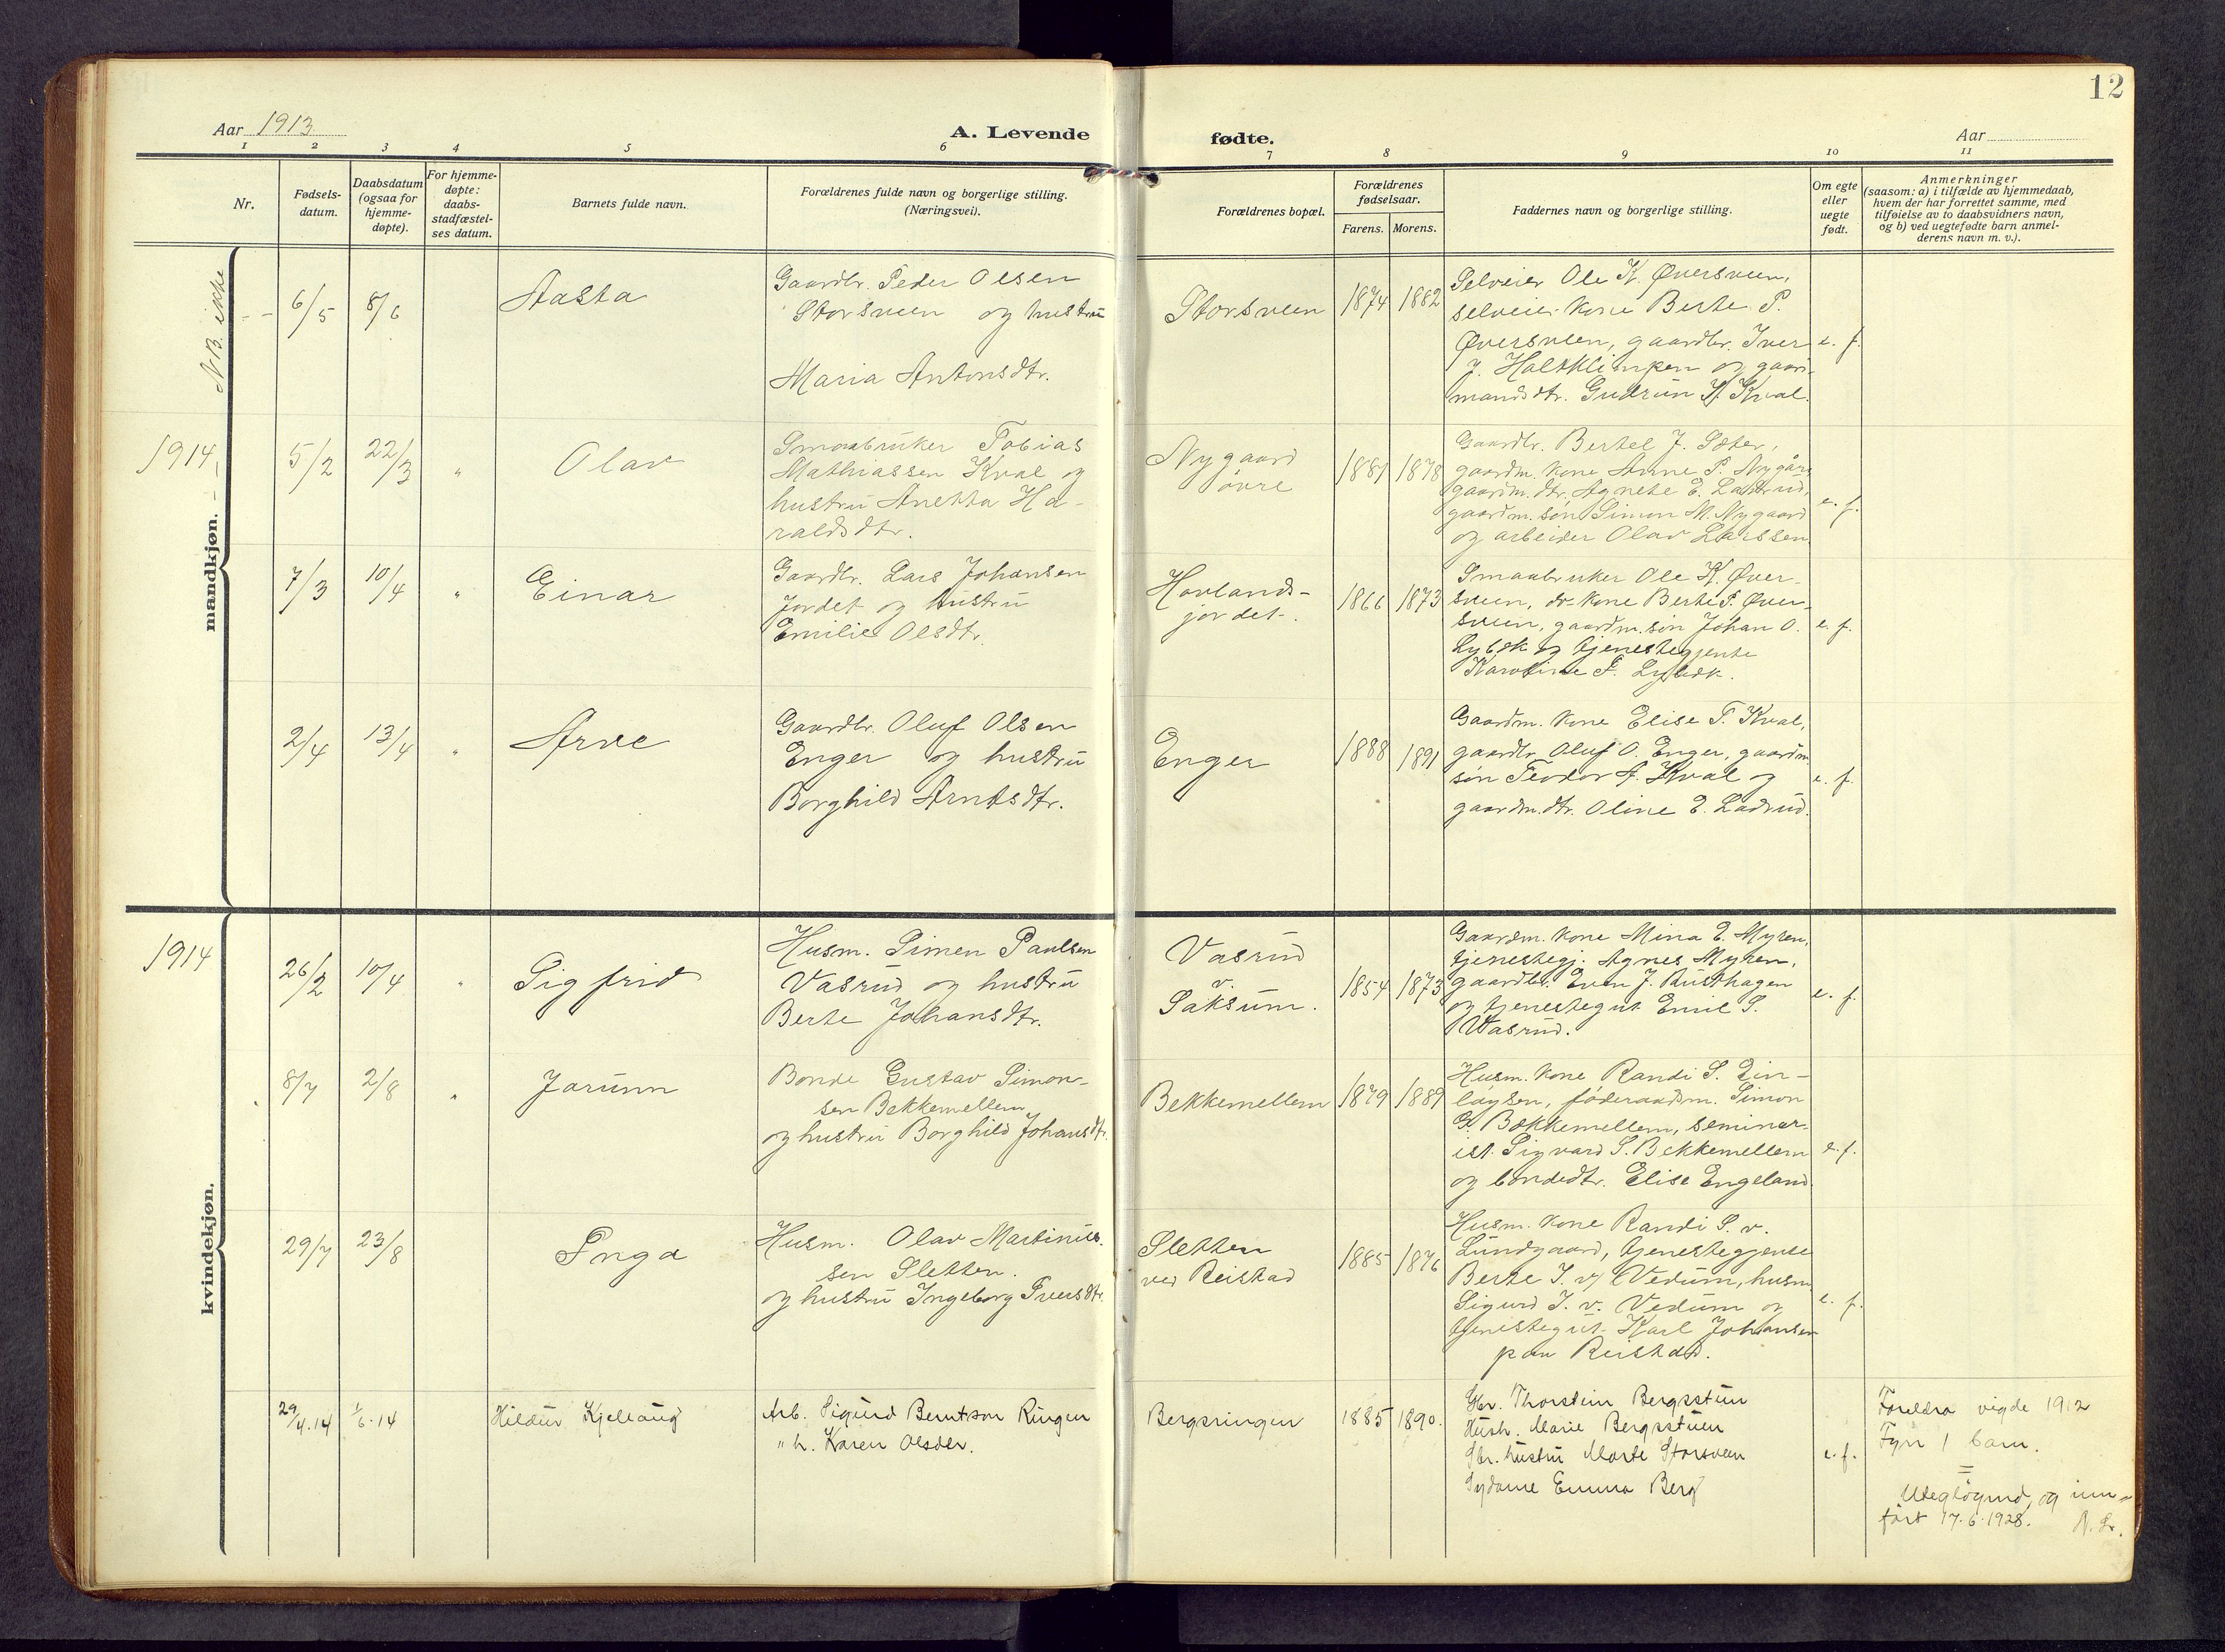 12
Aar 1913
A. Levende
fødte.
Aar
1 2 3 4 5 6 7 8 9 10 11
Nr.
Fødsels-
datum.
Daabsdatum
(ogsaa for
hjemme-
døpte).
For hjemme-
døpte:
daabs-
stadfæstel-
ses datum.
Barnets fulde navn.
Forældrenes fulde navn og borgerlige stilling.
(Næringsvei).
Forældrenes bopæl.
Forældrenes
fødselsaar.
Farens. Morens.
Faddernes navn og borgerlige stilling.
Om egte
eller
uegte
født.
Anmerkninger
(saasom: a) i tilfælde av hjemmedaab,
hvem der har forrettet samme, med
tilføielse av to daabsvidners navn,
og b) ved uegtefødte barn anmel-
derens navn m. v.).
mandkjøn. NB. ikke
6/5 8/6
Aasta
Gaardbr. Peder Olsen
Storsveen og hustru
Maria Antonsdtr.
Storsveen
1874 1882
Selveier Ole K. Øversveen,
selveier kone Berte P.
Øversveen, gaardbr. Iver
J. Haltklimpen og gaard-
mandsdtr. Gudrun K. Kval.
e. f.
1914
5/2 22/3 "
Olav
Smaabruker Tobias
Mathiassen Kval og
hustru Anetta Ha-
raldsdtr.
Nygaard
övre
1881 1878
Gaardbr. Bertel J. Sæter,
gaardm. kone Anne P. Nygård
gaardm. dtr. Agnete E. Ladsrud,
gaardm. søn Simon M. Nygaard
og arbeider Olav Larssen.
e. f.
7/3 10/4 "
Einar
Gaardbr. Lars Johansen
Jordet og hustru
Emilie Olsdtr.
Hovlands-
jordet.
1866 1873
Smaabruker Ole K. Øver-
sveen, dr kone Berte P. Øver-
sveen, gaardm. søn Johan O.
Lybæk og tjenestegjente
Karoline F. Lybæk.
e. f.
2/4 13/4 "
Arve
Gaardbr. Oluf Olsen
Enger og hustru
Borghild Arntsdtr.
Enger
1888 1891
Gaardm. kone Elise T. Kval,
gaardbr. Oluf O. Enger, gaardm.
søn Teodor A. Kval og
gaardm. dtr. Oline E. Ladsrud.
e. f.
kvindekjøn.
1914
26/2 10/4 "
Sigfrid
Husm. Simen Paulsen
Vasrud og hustru
Berte Johansdtr.
Vasrud
v.
Saksum.
1854 1873
Gaardm. kone Mina E. Myren,
tjenestegj. Agnes Myren,
gaardbr. Even J. Rusthagen
og tjenestegut Emil S.
Vasrud.
e. f.
8/7 2/8 "
Jorunn
Bonde Gustav Simon-
sen Bekkemellem
og hustru Borghild Johansdtr.
Bekkemellem
1879 1889
Husm. kone Randi S. Ein-
laugsen, føderaadsm. Simon
G. Bækkemellem, seminar-
ist Sigvard S. Bekkemellem
og bondedtr. Elise Engeland.
e. f.
29/7 23/8
Inga
Husm. Olav Martinus-
sen Sletten.
og hustru Ingeborg Iversdtr.
Sletten
ved Reistad
1885 1876
Husm. kone Randi S. v.
Lundgaard, tjenestegjente
Berte I. v/ Vedum, husm.
Sigurd I. v. Vedum og
tjenestegut Karl Johansen
paa Reistad.
e. f.
29/4.14 1/6.14
Hildur Kjellaug
Arb. Sigurd Berntson Ringen
" h. Karen Olsdtr.
Bergsringen
1885 1890.
Gbr. Thorstein Bergsstuen
Husm. Marie Bergsstuen
Gbr. hustru Marte Storsveen
Sydame Emma Berg
e. f.
Foreldra vigde 1912
Fyrr 1 barn.
=
Utegløymd, og inn-
ført 17.6.1928.